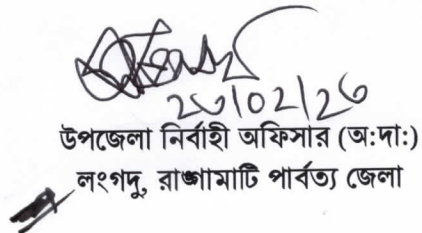 উপজেলা নির্বাহী অফিসার (অ:দা:)
লংগদু, রাঙ্গামাটি পার্বত্য জেলা